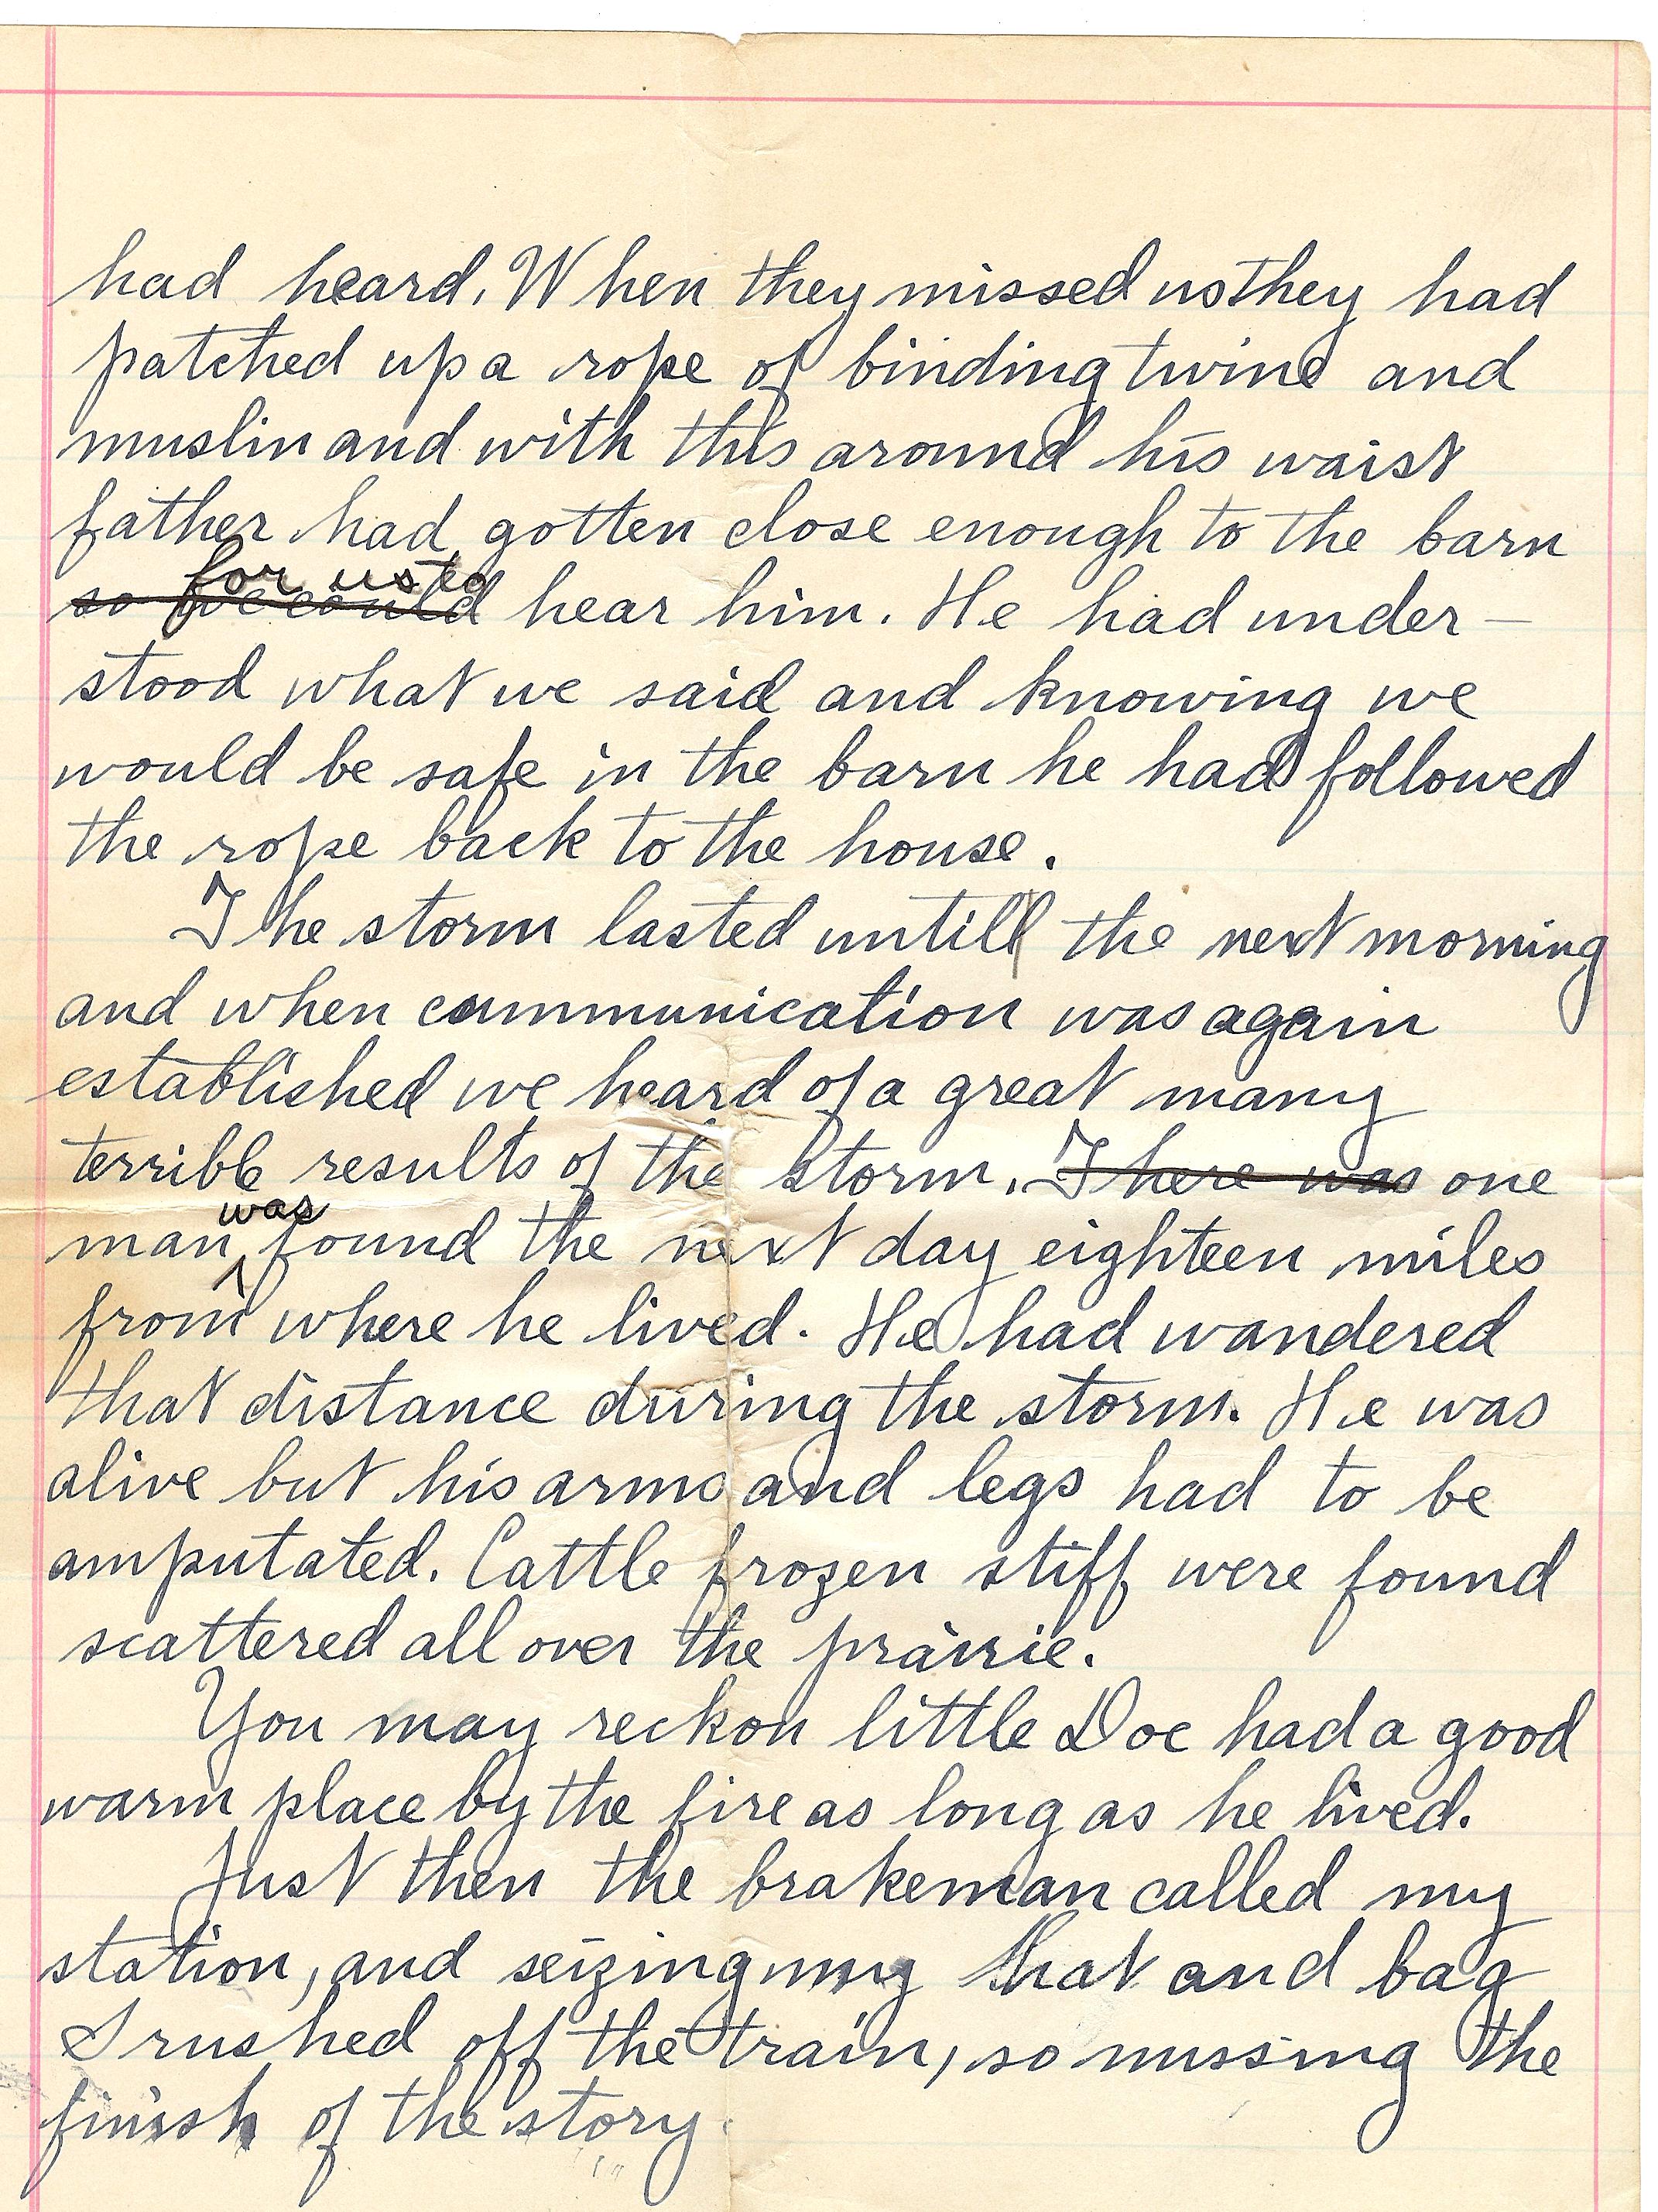 had heard. When they missed us they had
patched up a rope of binding twine and
muslin and with this around his waist
father had gotten close enough to the barn
for us to
so we could hear him. He had under-
stood what we said and knowing we
would be safe in the barn he had followed
the rope back to the house.
The storm lasted untill the next morning
and when communication was again
established we heard of a great many
terrible results of the storm. There was one
was
man found the next day eighteen miles
from where he lived. He had wandered
that distance during the storm. He was
alive but his arms and legs had to be
amputated. Cattle frozen stiff were found
scattered all over the prairie.
You may reckon little Doc had a good
warm place by the fire as long as he lived.
Just then the brakeman called my
station, and seizing my hat and bag
I rushed off the train, so missing the
finish of the story.